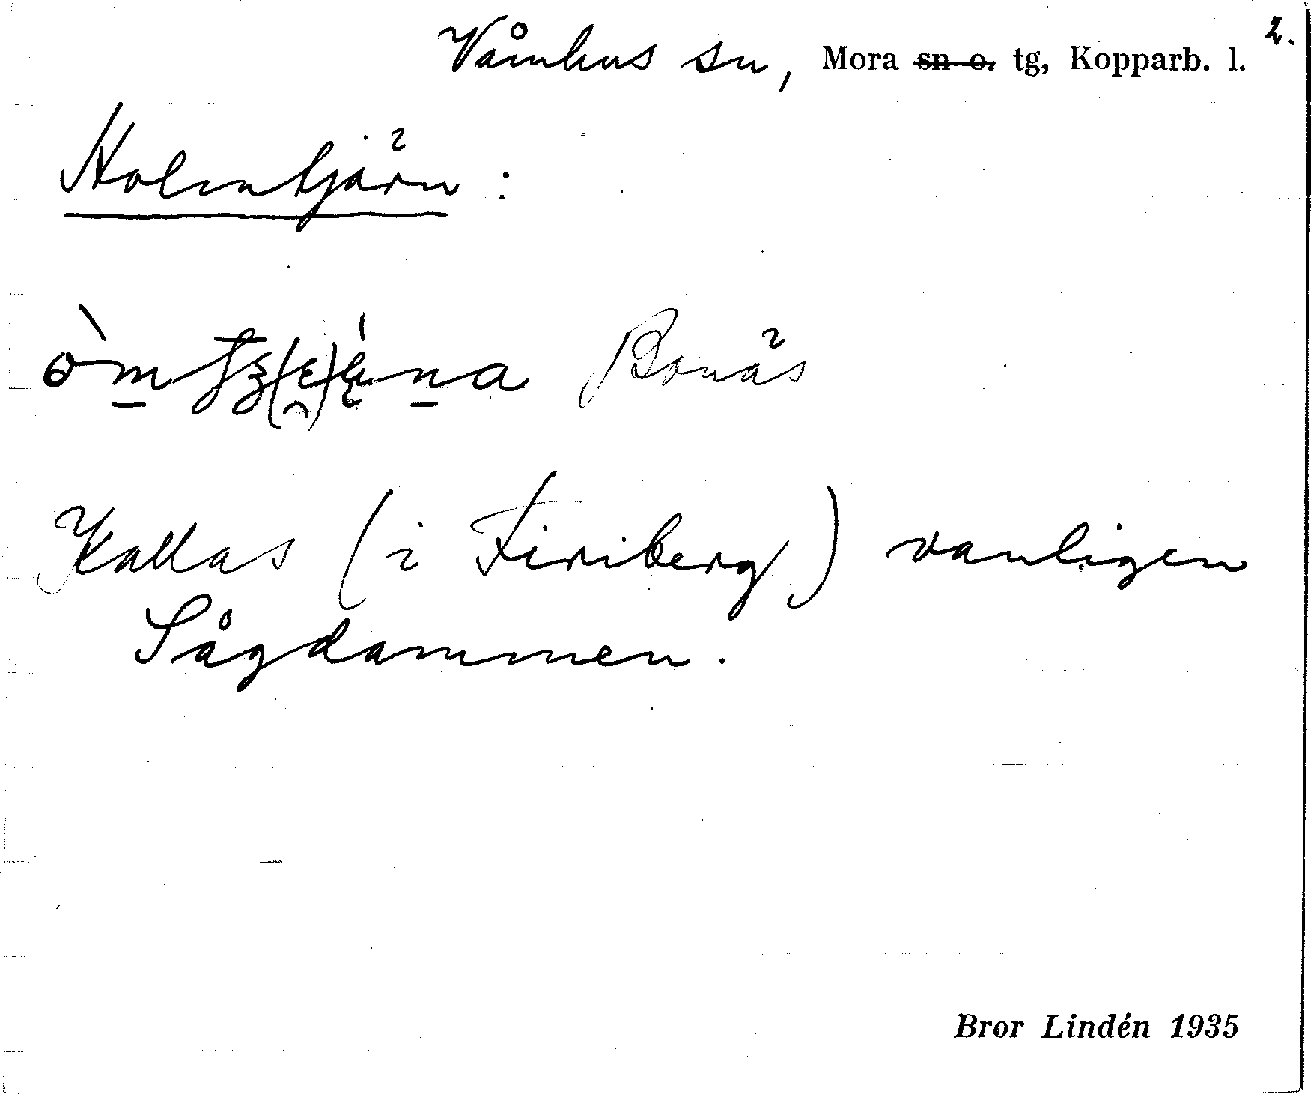 2.
Våmhus sn, Mora sn o. tg, Kopparb. l.
Holmtjärn :
Bonäs
Kallas (i Firiberg) vanligen
Sågdammen.
Bror Lindén 1935